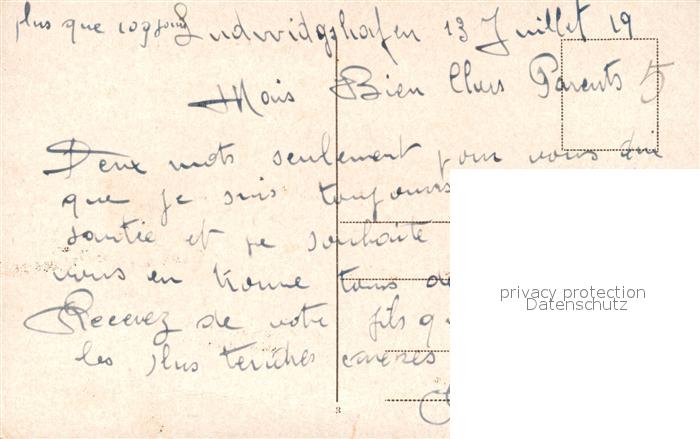 plus que 109 jours Ludwidgshafen 13 Juillet 19
Mais Bien Chers Parents 5
Deux mots seulement pour vous dire
que je suis toujours
santée et je souhaite
vous en trouve tous de
Recevez de votre fils q
les plus tendres careses
privacy protection
Datenschutz
3